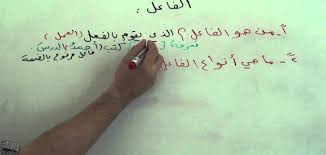 الفاعل :
1- من هو الفاعل ؟ الذي يقوم بالفعل ( العمل )
كتب أحمد الدرس
فاعل مرفوع بالضمة
2- ما هي أنواع الفاعل